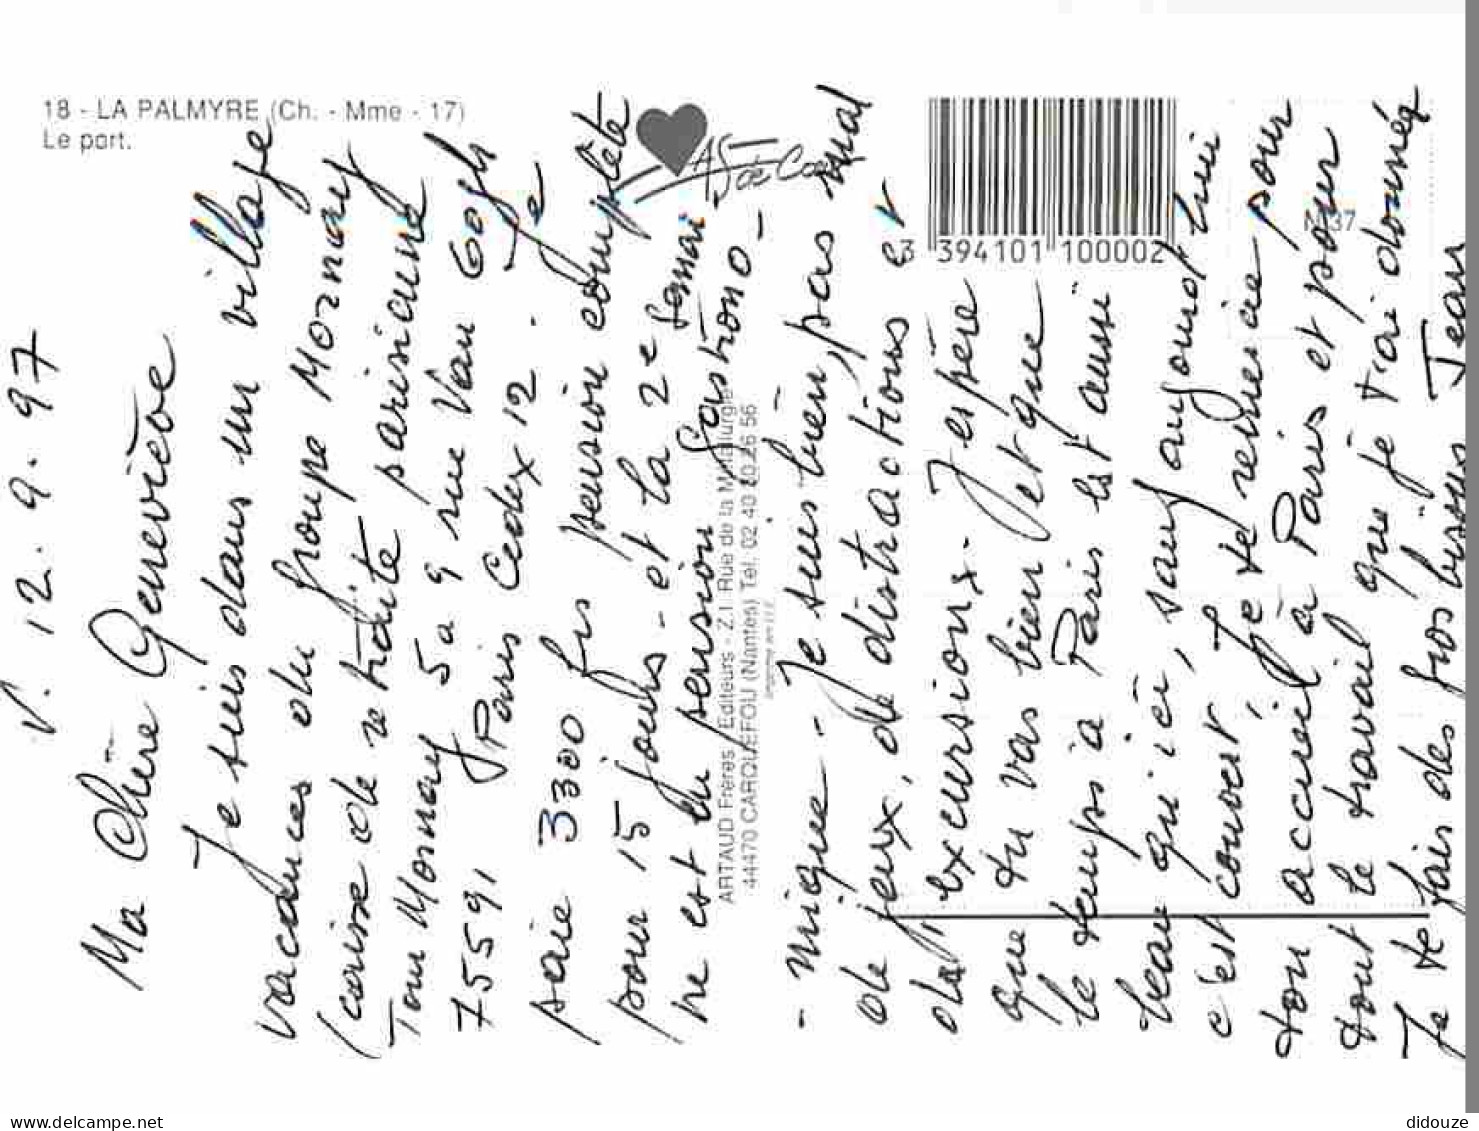 18 - LA PALMYRE (Ch. - Mme - 17)
Le port.
AS de Coeur
3 394101 100002
ARTAUD Frères, Editeurs - Z.I. Rue de la Métallurgie
44470 CARQUEFOU (Nantes) Tél. 02 40 30 26 56
V. 12. 9. 97
Ma Chère Geneviève
Je suis dans un village
vacances du groupe Mornay
(caisse de retraite parisienne
Tour Mornay 5 a 9 rue Van Gogh
75591 Paris Cedex 12. Je
paie 3300 frs pension complète
pour 15 jours - et la 2e semai
ne est en pension gastrono -
- mique - Je suis bien, pas mal
de jeux, de distractions et
d' excursions - J'espère
que tu vas bien et que
le temps à Paris est aussi
beau qu'ici, sauf aujourd'hui
c'est couvert, Je te remercie pour
ton accueil à Paris et pour
tout le travail que je t'ai donné
Je te fais des gros bisous Jean
delcampe.net
didouze